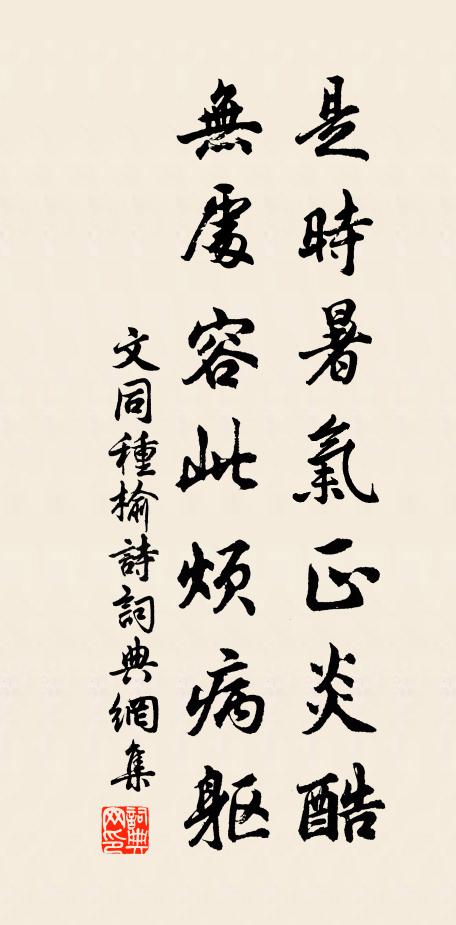 是時暑氣正炎酷
無處容此煩病軀
文同種榆詩詞典網集
詞典網印